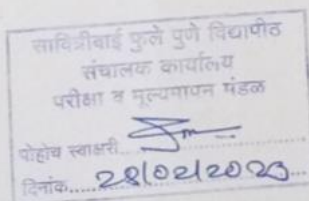 सावित्रीबाई फुले पुणे विद्यापीठ
संचालक कार्यालय
परीक्षा व मूल्यमापन मंडळ
पोहोच स्वाक्षरी
दिनांक 28/02/2023